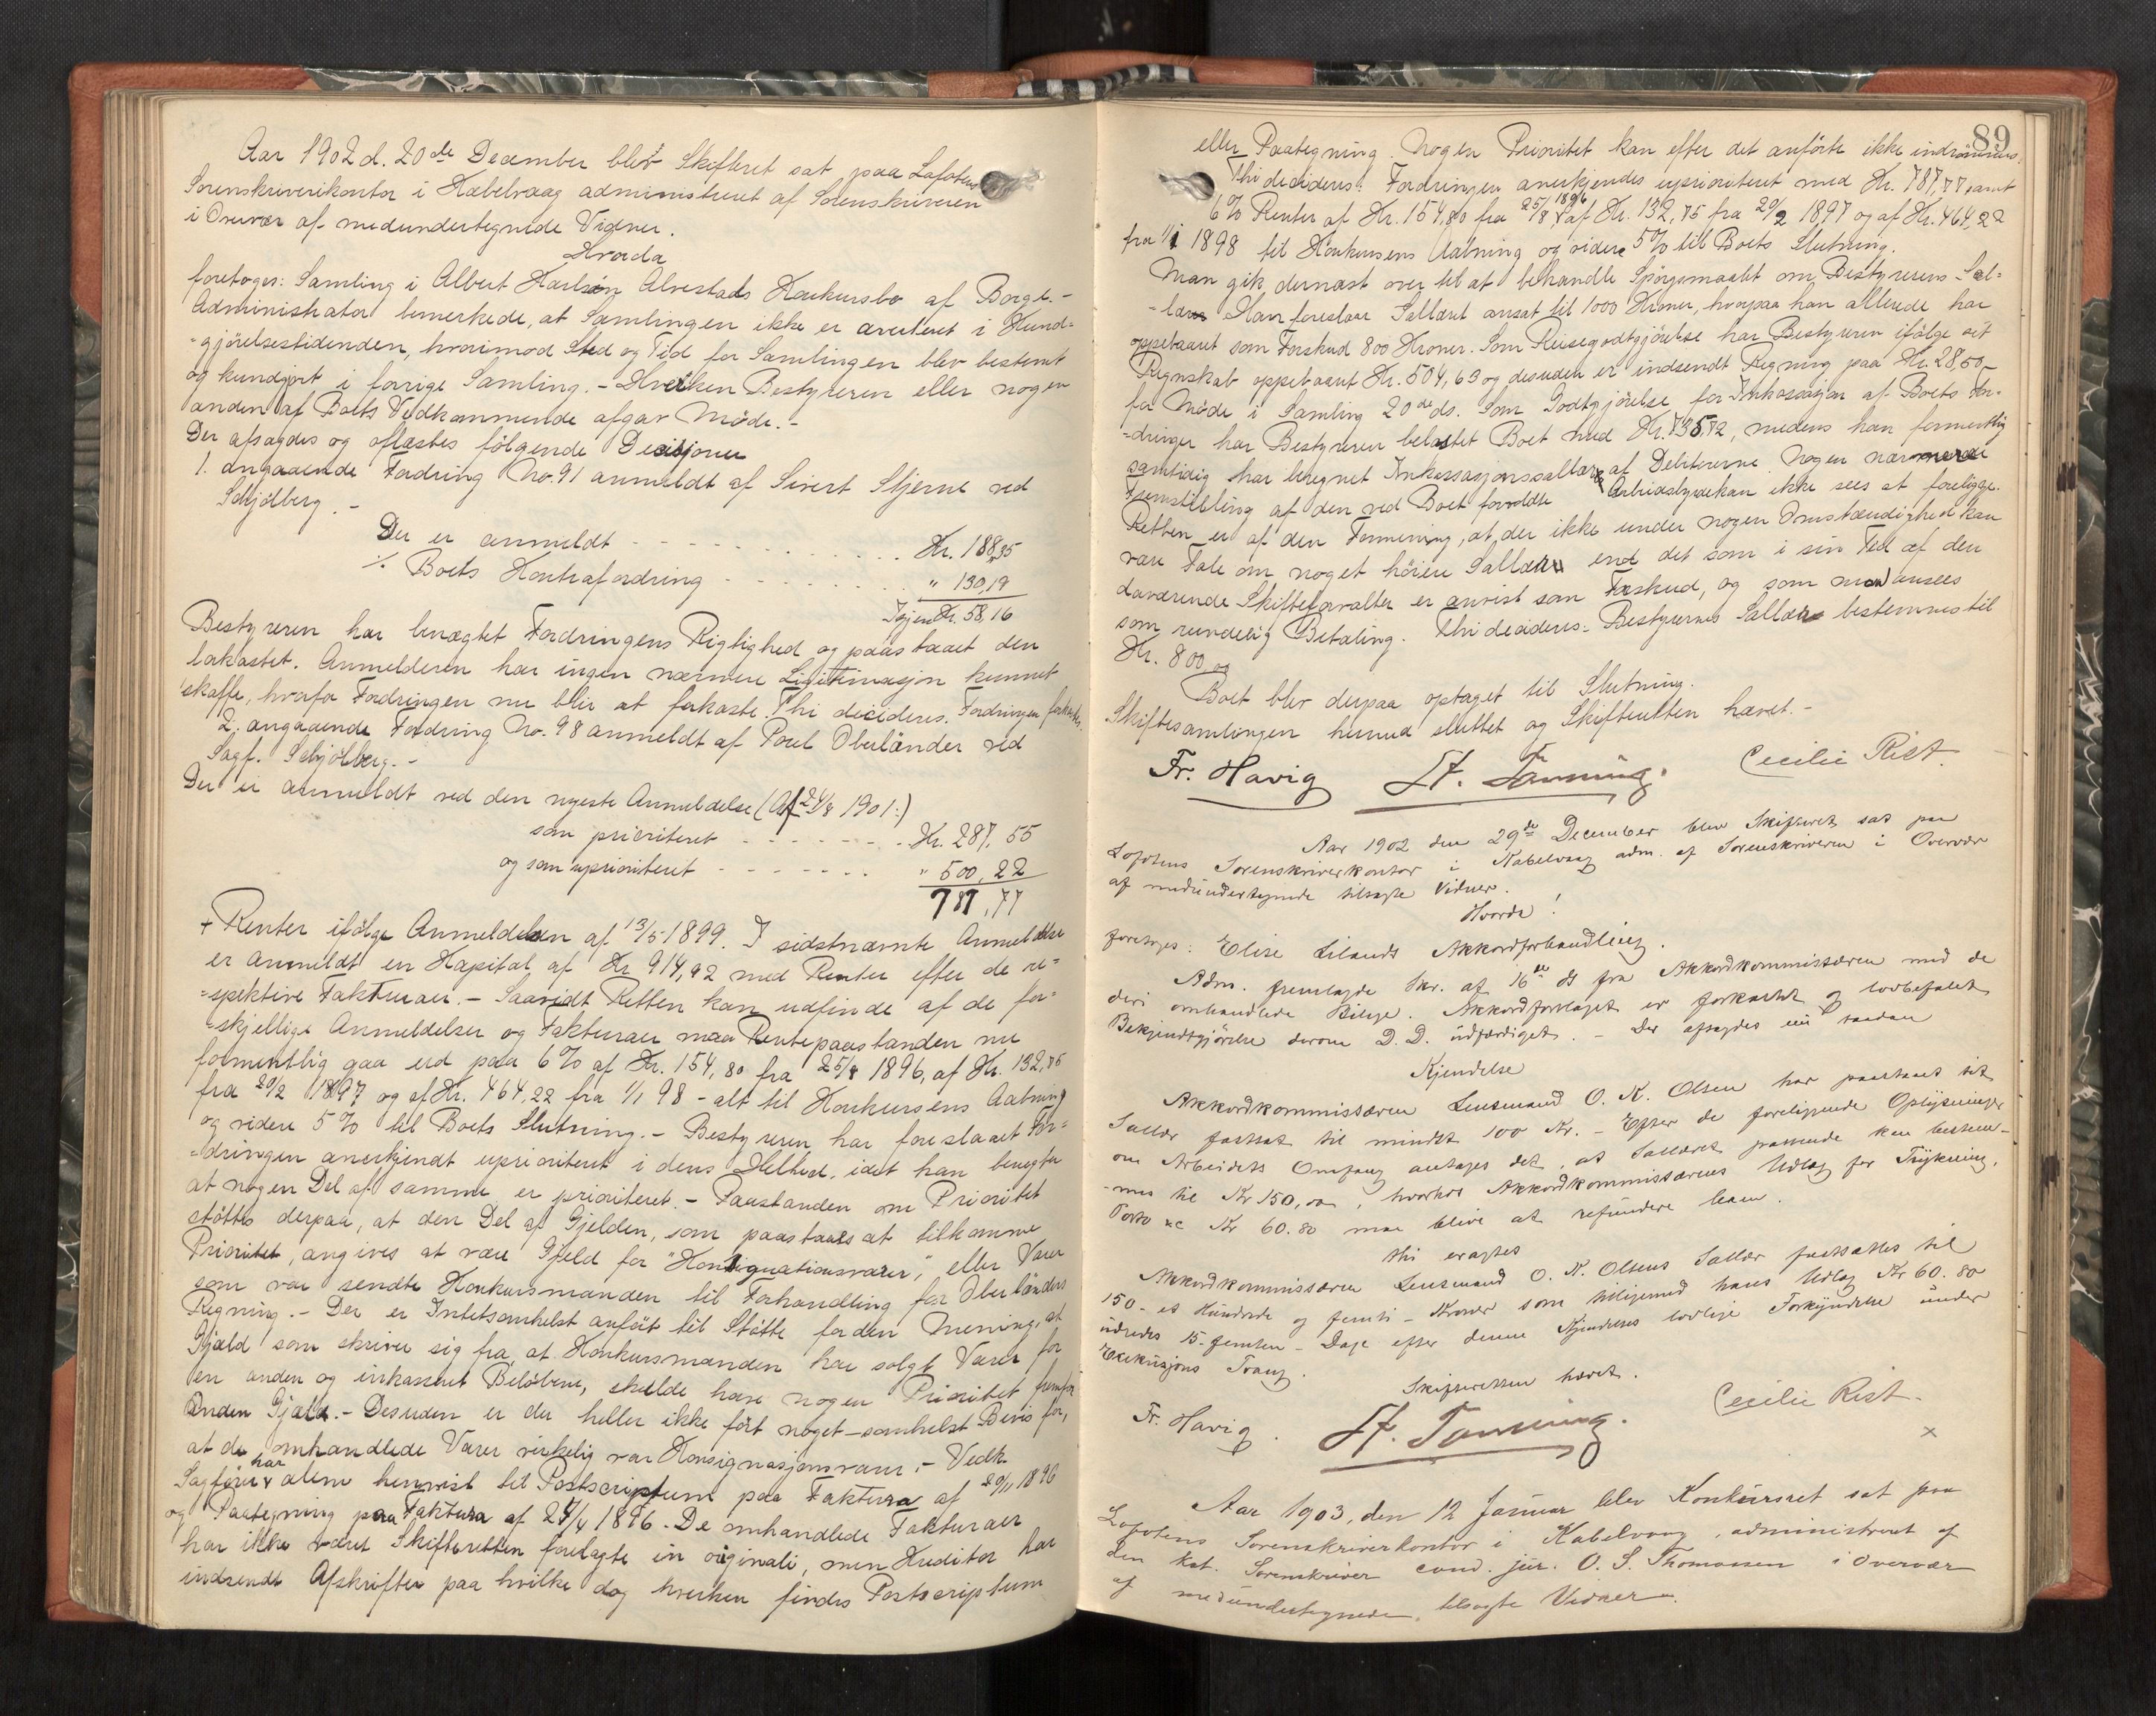 Aar 1902 d. 20de December blev Skifteret sat paa Lofotens
Sorenskriverikontor i Kabelvaag administreret af Sorenskriveren
i Overvær af medundertegnede Vidner.
Hvorda
foretoges: Samling i Albert Karlsön Alvestads Konkursbo af Borge.-
Administrator bemerkede, at Samlingen ikke er averteret i Kund-
-gjörelsestidenden, hvorimod Sted og Tid for Samlingen blev bestemt
og kundgjort i forrige Samling. - Hverken Bestyreren eller nogen
anden af Boets Vedkommende afgav Möde. -
Der afsagdes og oplæstes fölgende Decisjoner
1. angaaende Fordring No. 91 anmeldt af Sivert Stjerne ved
Schjölberg. -
Der er anmeldt - - - - Kr. 188,35
./. Boets Kontrafordring - - - - " 130,19
Igjen Kr. 58,16
Bestyreren har benægtet Fordringens Rigtighed og paastaaet den
forkastet. Anmelderen har ingen nærmere Legitimasjon kunnet
skaffe, hvorfor Fordringen nu blir at forkaste. Thi decideres. Fordringen forkastes.
2. angaaende Fordring No. 98 anmeldt af Poul Oberländer ved
Sagf. Schjölberg. -
Der er anmeldt ved den nyeste Anmeldelse (Af 24/8 1901.)
som prioriteret - - - - Kr. 287,55
og som uprioriteret - - - - " 500,22
787,77
+ Renter ifölge Anmeldelsen af 13/5 1899. I sidstnævnte Anmeldelse
er anmeldt en Kapital af Kr 914,92 med Renter efter de re-
-spektive Fakturaer. - Saavidt Retten kan udfinde af de for-
-skjellige Anmeldelser og Fakturaer maa Rentepaastanden nu
formentlig gaa ud paa 6% af Kr. 154,80 fra 25/8 1896, af Kr. 132,75
fra 20/2 1897 og af Kr. 464,22 fra 1/1 98 - alt til Konkursens Aabning
og videre 5% til Boets Slutning. - Bestyreren har foreslaaet For-
-dringen anerkjendt uprioriteret i dens Helhed, idet han benegter
at nogen Del af samme er prioriteret. - Paastanden om Prioritet
stöttes derpaa, at den Del af Gjelden, som paastaaes at tilkomme
Prioritet, angives at være Gjeld for "Konsignationsvarer", eller Varer
som var sendte Konkursmanden til Forhandling for Oberländers
Regning. - Der er Intetsomhelst anfört til Stötte for den Mening, at
Gjæld som skriver sig fra, at Konkursmanden har solgt Varer for
en anden og inkasseret Belöbene, skulde have nogen Prioritet fremfor
anden Gjæld. - Desuden er der heller ikke fört noget-somhelst Bevis for,
at de omhandlede Varer virkelig var Konsignasjonsvarer. - Vedk.
Sagförer har alene henvist til Postscriptum paa Faktura af 20/11 1896
og Paategning paa Faktura af 24/4 1896. De omhandlede Fakturaer
har ikke været Skifteretten forelagte in originali, men Kreditor har
indsendt Afskrifter paa hvilke dog hverken findes Postscriptum
89
eller Paategning. Nogen Prioritet kan efter det anförte ikke indrömmes.
Thi decideres: Fordringen anerkjendes uprioriteret med Kr. 787,77 samt
6% Renter af Kr. 154,80 fra 25/8 1896, af Kr. 132,75 fra 20/2 1897 og af Kr. 464,22
fra 1/1 1898 til Konkursens Aabning og videre 5% til Boets Slutning.
Man gik dernæst over til at behandle Spörgsmaalet om Bestyrerens Sal-
-lær. Han foreslaar Sallæret ansat til 1000 Kroner, hvorpaa han allerede har
oppebaaret som Forskud 800 Kroner. Som Reisegodtgjörelse har Bestyreren ifölge sit
Regnskab oppebaaret Kr. 504,63 og desuden er indsendt Regning paa Kr. 28,50
for Möde i Samling 20de ds. Som Godtgjörelse for Inkassasjon af Boets For-
-dringer har Bestyreren belastet Boet med Kr. 735,72, medens han formentlig
samtidig har beregnet Inkassasjonssallær af Debitorerne. Nogen nærmere
Fremstilling af den ved Boet forvoldte Arbeidsbyrde kan ikke sees at foreligge.
Retten er af den Formening, at der ikke under nogen Omstændighed kan
være Tale om noget höiere Sallær end det som i sin Tid af den
daværende Skifteforvalter er anvist som Forskud, og som maa ansees
som rundelig Betaling. Thi decideres: Bestyrernes Sallær bestemmes til
Kr. 800,00
Boet blev derpaa optaget til Slutning.
Skiftesamlingen hermed sluttet og Skifteretten hævet. -
Fr. Havig St. Tønning. Cecilie Rist.
Aar 1902 den 29de December blev Skifteret sat paa
Lofotens Sorenskriverkontor i Kabelvaag adm. af Sorenskriveren i Overvær
af medundertegnede tilsagte Vidner.
Hvorda!
foretoges: Elise Lilands Akkordforhandling.
Adm. fremlagde Skr. af 16de ds fra Akkordkommissæren med de
deri omhandlede Bilage. Akkordforslaget er forkastet og lovbefalet
Bekjendtgjörelse derom D. D. udfærdiget. - Der afsagdes nu saadan
Kjendelse
Akkordkommissæren Lensmand O. K. Olsen har paastaaet sit
Sallær fastsat til mindst 100 Kr. - Efter de foreliggende Oplysninger
om Arbeidets Omfang antages det, at Sallæret passende kan bestem-
-mes til Kr 150,00, hvorhos Akkordkommissærens Udlæg for Trykning,
Porto &c Kr 60.80 maa blive at refundere ham.
Thi eragtes
Akkordkommissæren Lensmand O. K. Olsens Sallær fastsættes til
150 - et Hundrede og femti - Kroner som tilligemed hans Udlæg Kr 60.80
udredes 15 - femten - Dage efter denne Kjendelses lovlige Forkyndelse under
Exekusjons Tvang.
Skifteretten hævet.
Fr. Havig. St. Tønning. Cecilie Rist.
Aar 1903, den 12 Januar blev Konkursret sat paa
Lofotens Sorenskriverkontor i Kabelvaag, administreret af
den kst. Sorenskriver cand. jur. O. S. Thomassen i Overvær
af medundertegnede, tilsagte Vidner.